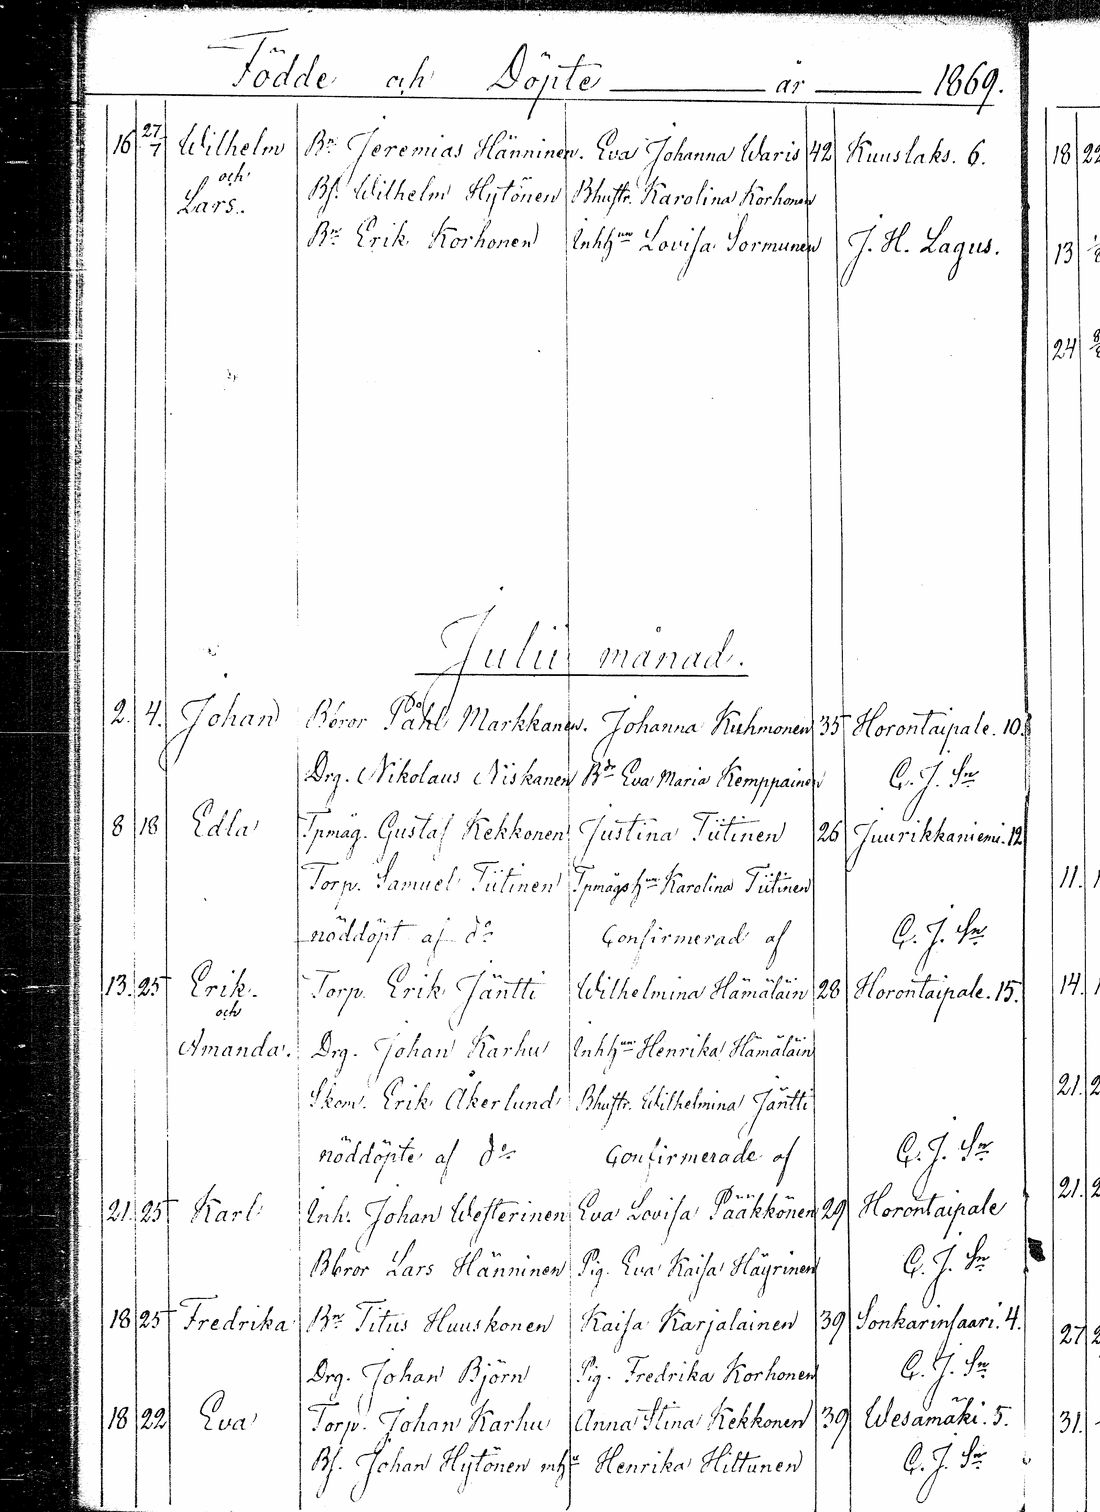 Födde och Döpte år 1869.
16 27/7 Wilhelm Bn Jeremias Hänninen. Eva Johanna Waris 42 Kuuslaks. 6.
och
Lars. Bs. Wilhelm Hytönen Bhustr. Karolina Korhonen
Bn Erik Korhonen Inhhun Lovisa Sormunen J. H. Lagus.
Julii månad.
2. 4. Johan Bbror Påhl Markkanen. Johanna Kuhmonen 35 Horontaipale. 10.
Drg. Nikolaus Niskanen Bdr Eva Maria Kemppainen C. J. Sn
8 18 Edla Tpmåg. Gustaf Kekkonen Justina Tiitinen 26 Juurikkaniemi. 12
Torp. Samuel Tiitinen Tpmågshun Karolina Tiitinen
nöddöpt af do Confirmerad af C. J. Sn
13. 25 Erik. Torp. Erik Jäntti Wilhelmina Hämäläin 28 Horontaipale. 15.
och
Amanda. Drg. Johan Karhu Inhhun Henrika Hämäläin
Skom. Erik Åkerlund Bhustr. Wilhelmina Jäntti
nöddöpte af do Confirmerade af C. J. Sn
21. 25 Karl Inh. Johan Westerinen Eva Lovisa Pääkkönen 29 Horontaipale
Bbror Lars Hänninen Pig. Eva Kaisa Häyrinen C. J. Sn
18 25 Fredrika Bn Titus Huuskonen Kaisa Karjalainen 39 Sonkarinsaari. 4.
Drg. Johan Björn Pig. Fredrika Korhonen C. J. Sn
18 22 Eva Torp. Johan Karhu Anna Stina Kekkonen 39 Wesamäki. 5.
Bs. Johan Hytönen mhu Henrika Hiltunen C. J. Sn
18 22
13
24
11.
14.
21. 2
21. 2
27 2
31.